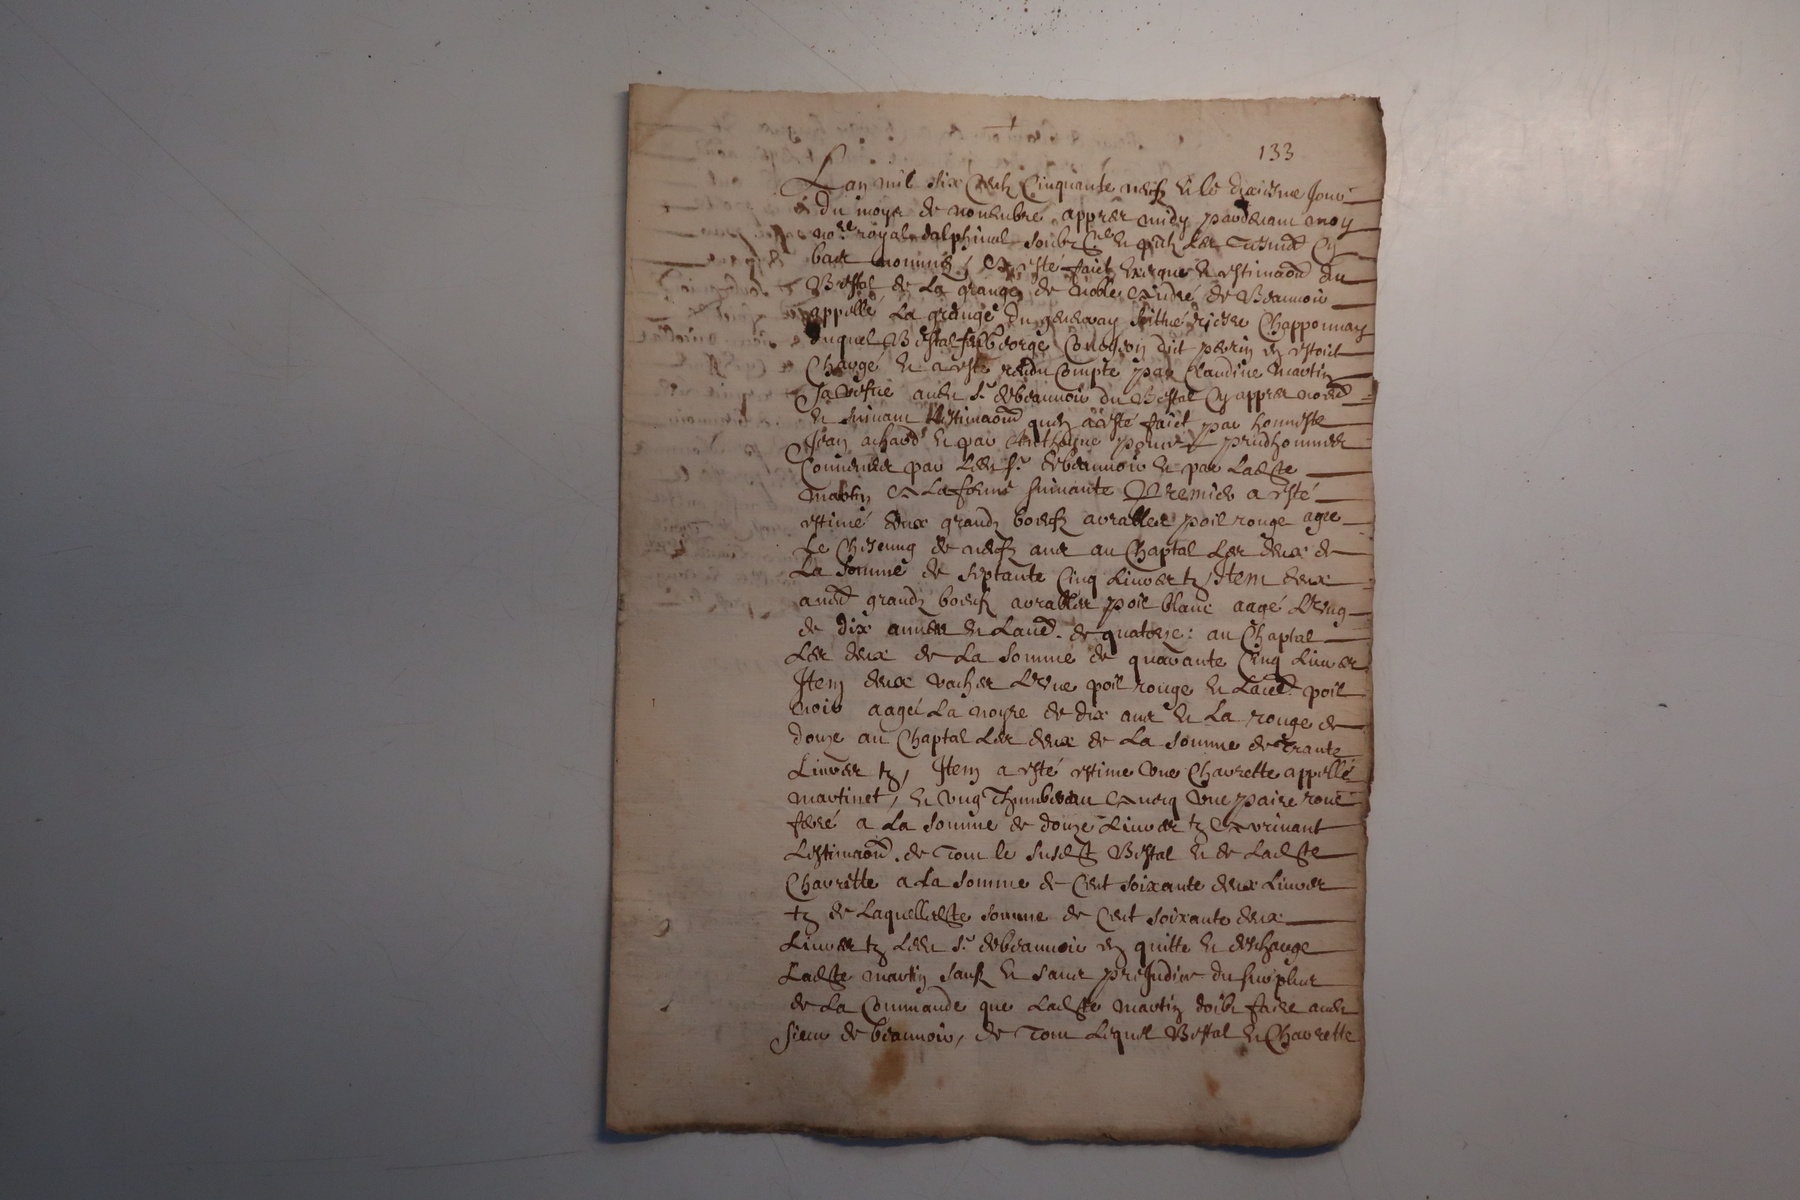 133
Lan mil six centz Cinquante neufz & le dixiesme Jour
du moys de nouembre appres midy pardeuant moy
nore royal dalphinal soubzné & prntz les tesmoins Cy
bas nommés, a esté faict exegue & estimaon du
Bestal de La grange de noble André de Beaumoir
appellé La grange du genevay sittué riesre Chapponnay
duquel Bestal George dit perrin en estoit
Chargé & a esté rendu Compte par Claudine Martin
sa vefue audit sr debeaumoir du Bestal Cy appres nommé
& suiuant Lestimaon quen a esté faict par honneste
Jean achard & par Anthoyne prudhommes
Conuenus par Ledit sr debeaumoir & par Ladite
martin a La forme suiuante Premier a esté
estimé deux grandz boeufz arables poil rouge ages
Le Chescung de neufz ans au Chaptal Les deux de
La somme de septante Cinq Liures tz, Item deux
aues grandz boeufz arables poil blanc aagé Lung
de dix annees & Lautre de quatorze: au Chaptal
Les deux de La somme de quarante Cinq Liures
Item deux vaches Lune poil rouge & Lautre poil
noir aagé La noyre de dix ans & La rouge de
douze au Chaptal Les deux de La somme de trante
Liures tz, Item a esté estime vne Charrette appellé
martinet, & vng Thumbereau auecq vne paire roue
ferré a La somme de douze Liures tz Reuenant
Lestimaon de tout le susdit Bestal & de Ladite
Charrette a La somme de Cent soixante deux Liures
tz de Laquelledite somme de Cent soixante deux
Liures tz Ledit sr debeaumoir en quitte & descharge
Ladite martin sauf & sans preJudice du surplus
de La Commande que Ladite martin doibt faire audit
sieur de beaumoir, de tout Lequel Bestal & Charrette